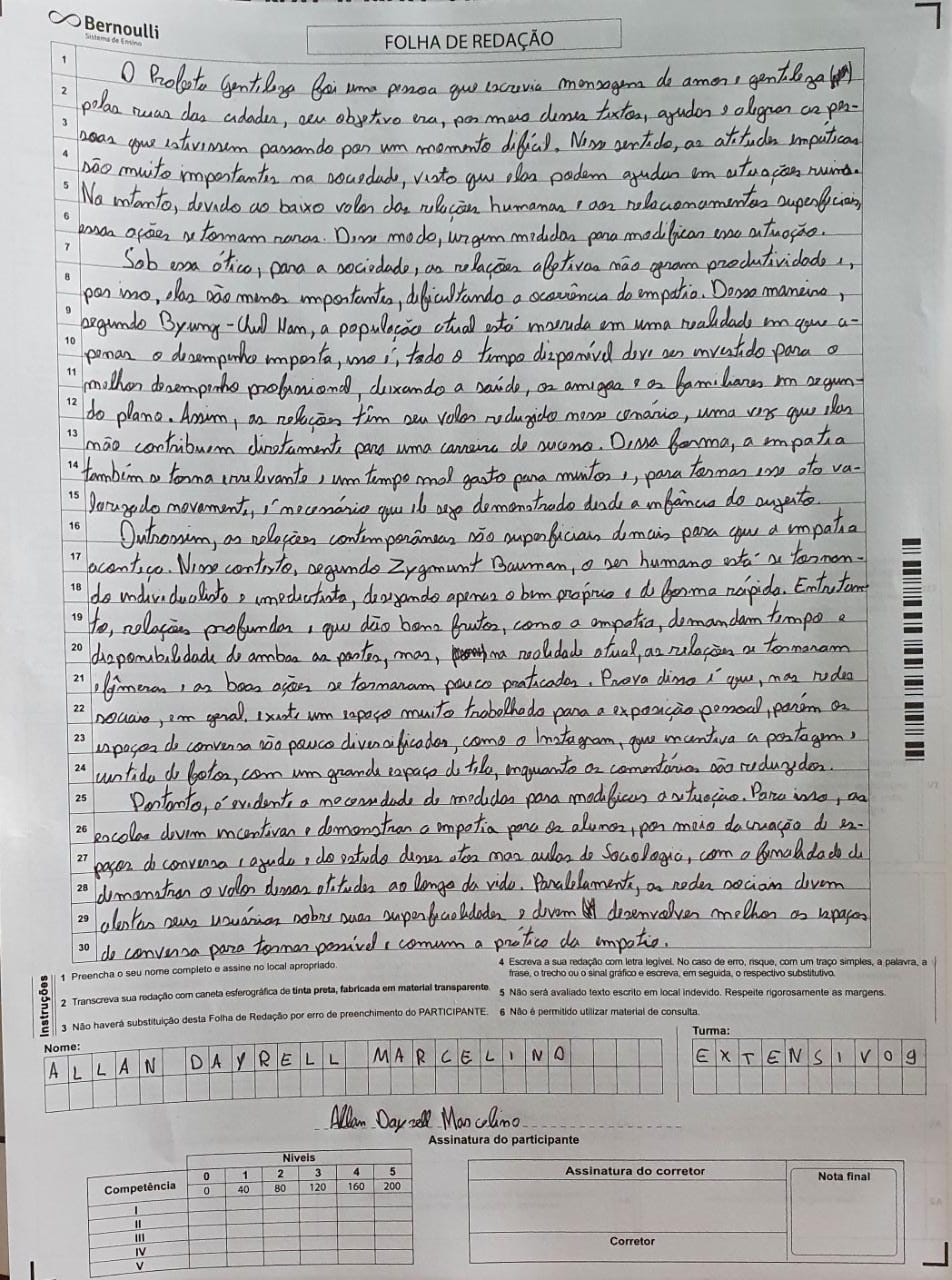 Bernoulli
Sistema de Ensino
FOLHA DE REDAÇÃO
1 O Profeta Gentileza foi uma pessoa que escrevia mensagens de amor e gentileza
2 pelas ruas das cidades, seu objetivo era, por meio desses textos, ajudar e alegrar as pes-
3 soas que estivessem passando por um momento difícil. Nesse sentido, as atitudes empáticas
4 são muito importantes na sociedade, visto que elas podem ajudar em situações ruins.
5 No entanto, devido ao baixo valor das relações humanas e aos relacionamentos superficiais,
6 essas ações se tornam raras. Desse modo, urgem medidas para modificar essa situação.
7 Sob essa ótica, para a sociedade, as relações afetivas não geram produtividade e,
8 por isso, elas são menos importantes, dificultando a ocorrência da empatia. Dessa maneira,
9 segundo Byung-Chul Han, a população atual está inserida em uma realidade em que a-
10 penas o desempenho importa, isso é, todo o tempo disponível deve ser investido para o
11 melhor desempenho profissional, deixando a saúde, os amigos e os familiares em segun-
12 do plano. Assim, as relações têm seu valor reduzido nesse cenário, uma vez que elas
13 não contribuem diretamente para uma carreira de sucesso. Dessa forma, a empatia
14 também se torna irrelevante e um tempo mal gasto para muitos e, para tornar esse ato va-
15 lorizado novamente, é necessário que ele seja demonstrado desde a infância do sujeito.
16 Outrossim, as relações contemporâneas são superficiais demais para que a empatia
17 aconteça. Nesse contexto, segundo Zygmunt Bauman, o ser humano está se tornan-
18 do individualista e imediatista, desejando apenas o bem próprio e de forma rápida. Entretan-
19 to, relações profundas e que dão bons frutos, como a empatia, demandam tempo e
20 disponibilidade de ambas as partes, mas, na realidade atual, as relações se tornaram
21 efêmeras e as boas ações se tornaram pouco praticadas. Prova disso é que, nas redes
22 sociais, em geral, existe um espaço muito trabalhado para a exposição pessoal, porém os
23 espaços de conversa são pouco diversificados, como o Instagram, que incentiva a postagem e
24 curtida de fotos, com um grande espaço de tela, enquanto os comentários são reduzidos.
25 Portanto, é evidente a necessidade de medidas para modificar a situação. Para isso, as
26 escolas devem incentivar e demonstrar a empatia para os alunos, por meio da criação de es-
27 paços de conversa e ajuda e do estudo desses atos nas aulas de Sociologia, com a finalidade de
28 demonstrar o valor dessas atitudes ao longo da vida. Paralelamente, as redes sociais devem
29 alertar seus usuários sobre suas superficialidades e devem desenvolver melhor os espaços
30 de conversa para tornar possível e comum a prática da empatia.
Instruções
1 Preencha o seu nome completo e assine no local apropriado.
2 Transcreva sua redação com caneta esferográfica de tinta preta, fabricada em material transparente.
3 Não haverá substituição desta Folha de Redação por erro de preenchimento do PARTICIPANTE.
4 Escreva a sua redação com letra legível. No caso de erro, risque, com um traço simples, a palavra, a
frase, o trecho ou o sinal gráfico e escreva, em seguida, o respectivo substitutivo.
5 Não será avaliado texto escrito em local indevido. Respeite rigorosamente as margens.
6 Não é permitido utilizar material de consulta.
Nome:
ALLAN DAYRELL MARCELINO
Turma:
EXTENSIVO9
Allan Dayrell Marcelino
Assinatura do participante
Níveis
Competência 0 1 2 3 4 5
0 40 80 120 160 200
I
II
III
IV
V
Assinatura do corretor
Corretor
Nota final